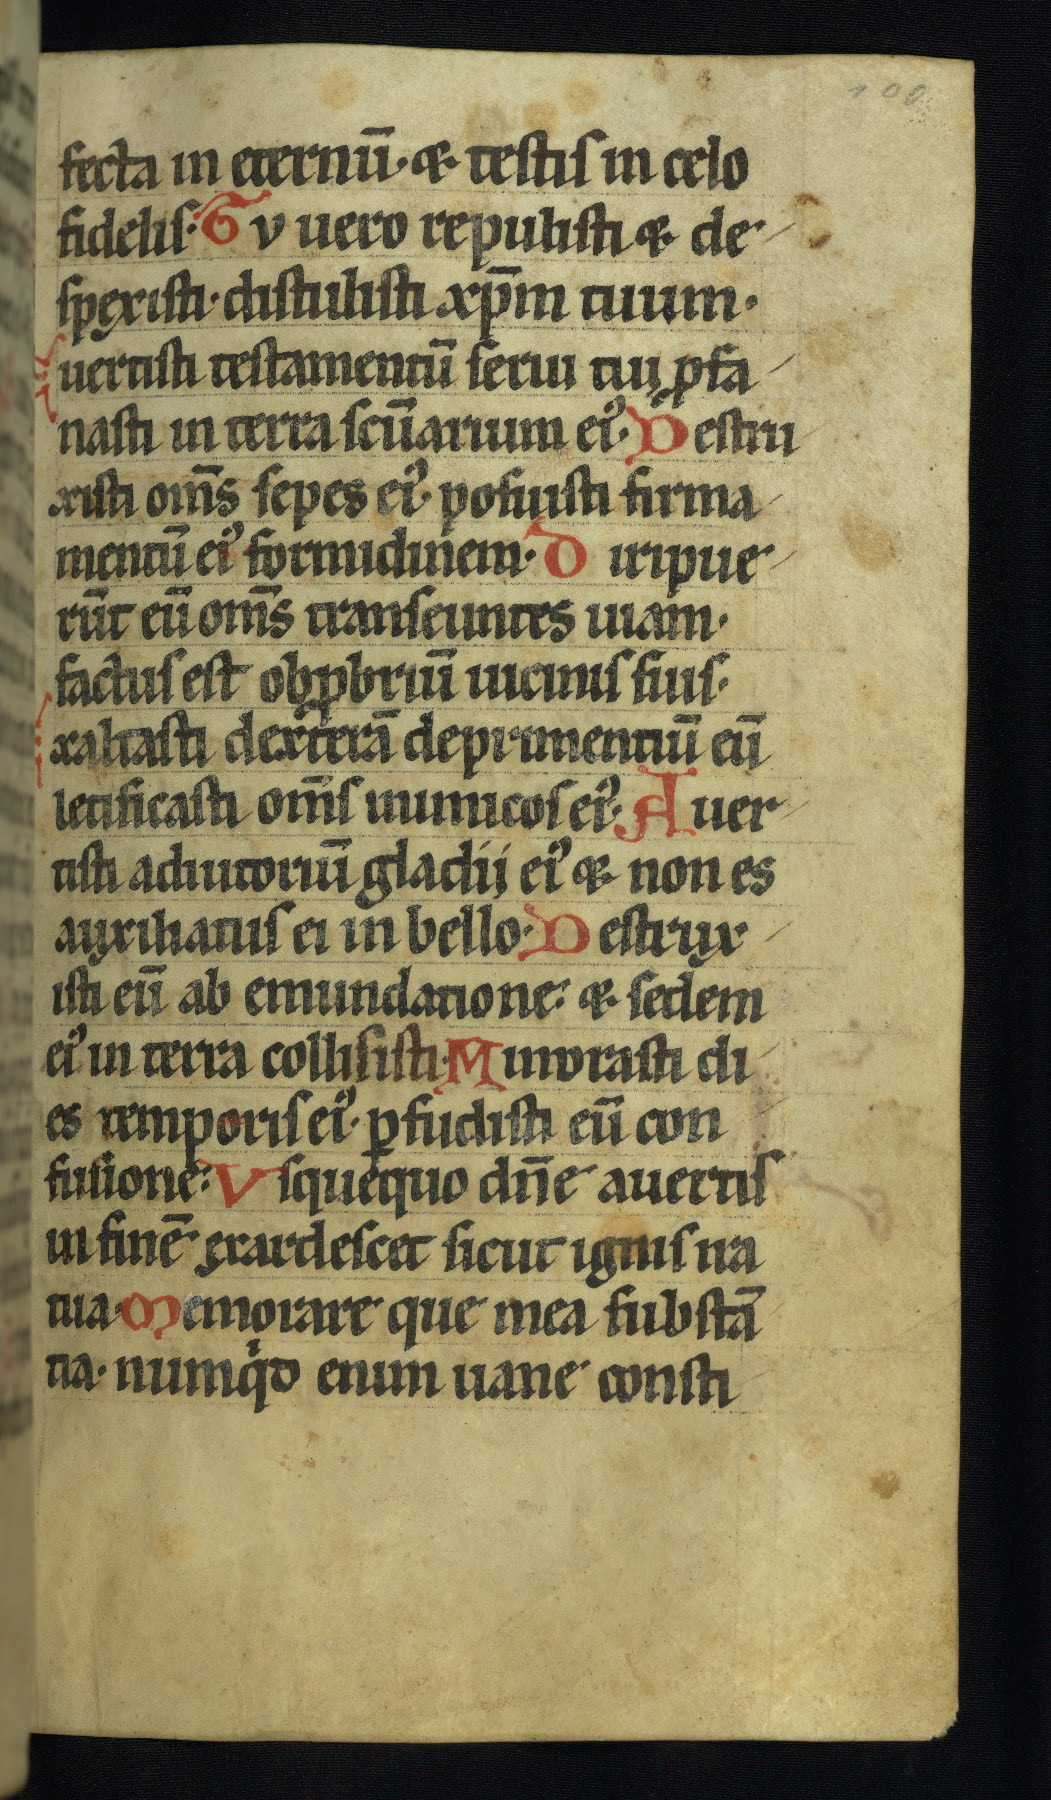 100
fecta in eternū· & testis in celo
fidelis· Tu uero repulisti & de-
spexisti· distulisti xp̄m tuum·
Euertisti testamentū serui tui ꝓfa-
nasti in terra scūarium ei᾿· Destru
xisti om̄s sepes ei᾿· posuisti firma-
mentū ei᾿ formidinem· Diripue-
rūt eū om̄s transeuntes uiam·
factus est obꝓbriū uicinis suis·
Exaltasti dexterā deprimentiū eū
letificasti om̄s inimicos ei᾿· Auer-
tisti adiutoriū gladij ei᾿ & non es
auxiliatus ei in bello· Destrux-
isti eū ab emundatione: & sedem
ei᾿ in terra collisisti· Minorasti di-
es temporis ei᾿· ꝑfudisti eū con
fusione: Vsquequo dn̄e auertis
in finē exardescet sicut ignis ira
tua· Memorare que mea substā
tia· numqid enim uane consti